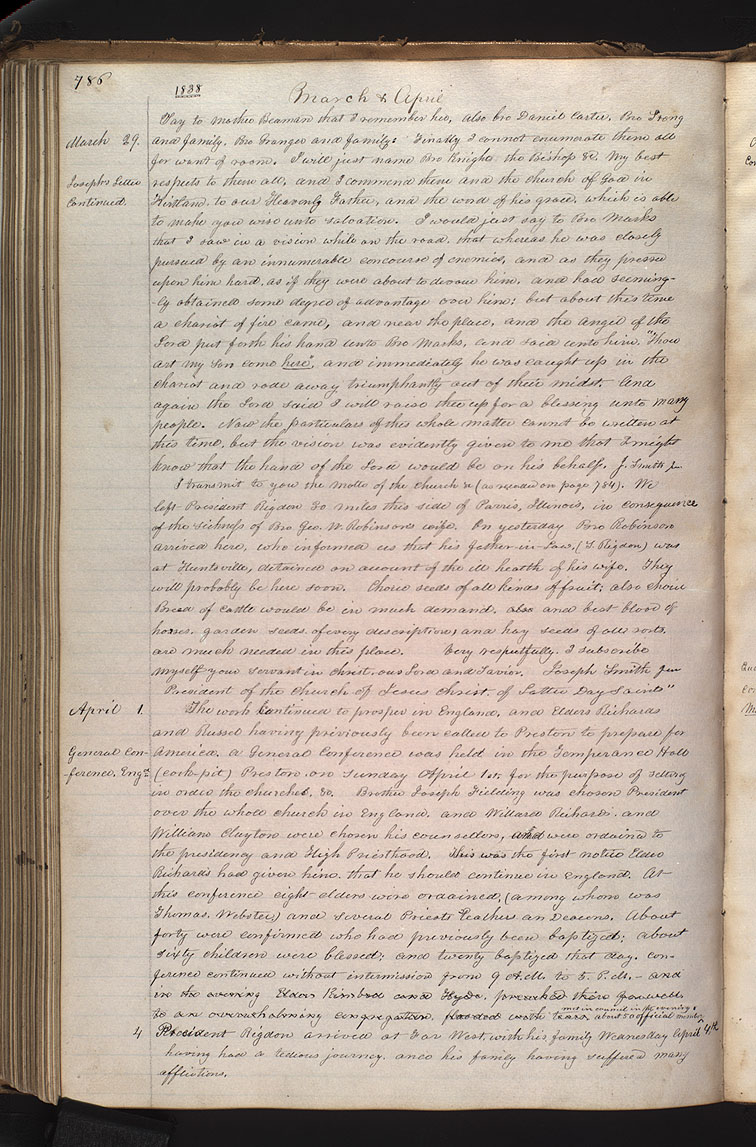 786
1838
March & April
March 29.
Josephs Letter
Continued
Say to mother Beaman that I remember her, also bro Daniel Carter, Bro Strong
and family, Bro Granger and family: Finally I cannot enumerate them all
for want of room. I will just name Bro Knight the Bishop &c. My best
respects to them all, and I commend them and the church of God in
Kirtland to our Heavenly Father, and the word of his grace, which is able
to make you wise unto salvation. I would just say to Bro Marks
that I saw in a vision while on the road, that whereas he was closely
pursued by an innumerable concourse of enemies, and as they pressed
upon him hard, as if they were about to devour him, and had seeming-
-ly obtained some degree of advantage over him; but about this time
a chariot of fire came, and near the place, and the angel of the
Lord put forth his hand unto Bro Marks, and said unto him "Thou
art my son come here", and immediately he was caught up in the
chariot and rode away triumphantly out of their midst. And
again the Lord said I will raise thee up for a blessing unto many
people. Now the particulars of this whole matter cannot be written at
this time, but the vision was evidently given to me that I might
know that the hand of the Lord would be on his behalf. J. Smith Jr.
I transmit to you the Motto of the Church &c (as recorded on page 784). We
left President Rigdon 30 miles this side of Parris, Illinois, in consequence
of the sickness of Bro Geo. W. Robinson's wife. On yesterday Bro Robinson
arrived here, who informed us that his father-in-Law, (S. Rigdon) was
at Huntsville, detained on account of the ill health of his wife. They
will probably be here soon. Choice seeds of all kinds of fruit; also choice
Breed of cattle would be in much demand. also and best blood of
horses. garden seeds of every description, and hay seeds of all sorts.
are much needed in this place. Very respectfully. I subscribe
myself your servant in Christ. our Lord and Savior. Joseph Smith Jun
President of the Church of Jesus Christ, of Latter Day Saints"
April 1.
General Con-
-ference. Engd.
The work continued to prosper in England, and Elders Richards
and Russel having previously been called to Preston to prepare for
America. a General Conference was held in the Temperance Hall
(cock-pit) Preston. on Sunday April 1st. for the purpose of setting
in order the churches. &c. Brother Joseph Fielding was chosen President
over the whole church in England. and Willard Richards. and
William Clayton were chosen his counsellors, and were ordained to
the presidency and High Priesthood. This was the first notice Elder
Richards had given him. that he should continue in England. At
this conference eight elders were ordained. (among whom was
Thomas. Webster) and several Priests Teachers an Deacons. About
forty were confirmed who had previously been baptized; about
sixty children were blessed; and twenty baptized that day. con-
ference continued without intermission from 9 A.M. to 5. P.M. – and
in the evening Elders Kimball and Hyde. preached their farewells
met in council in the evening;
to an overwhelming congregation flooded with tears. about 50 official members
4 President Rigdon arrived at Far West with his family Wednesday April 4th
having had a tedious journey. and his family having suffered many
afflictions.